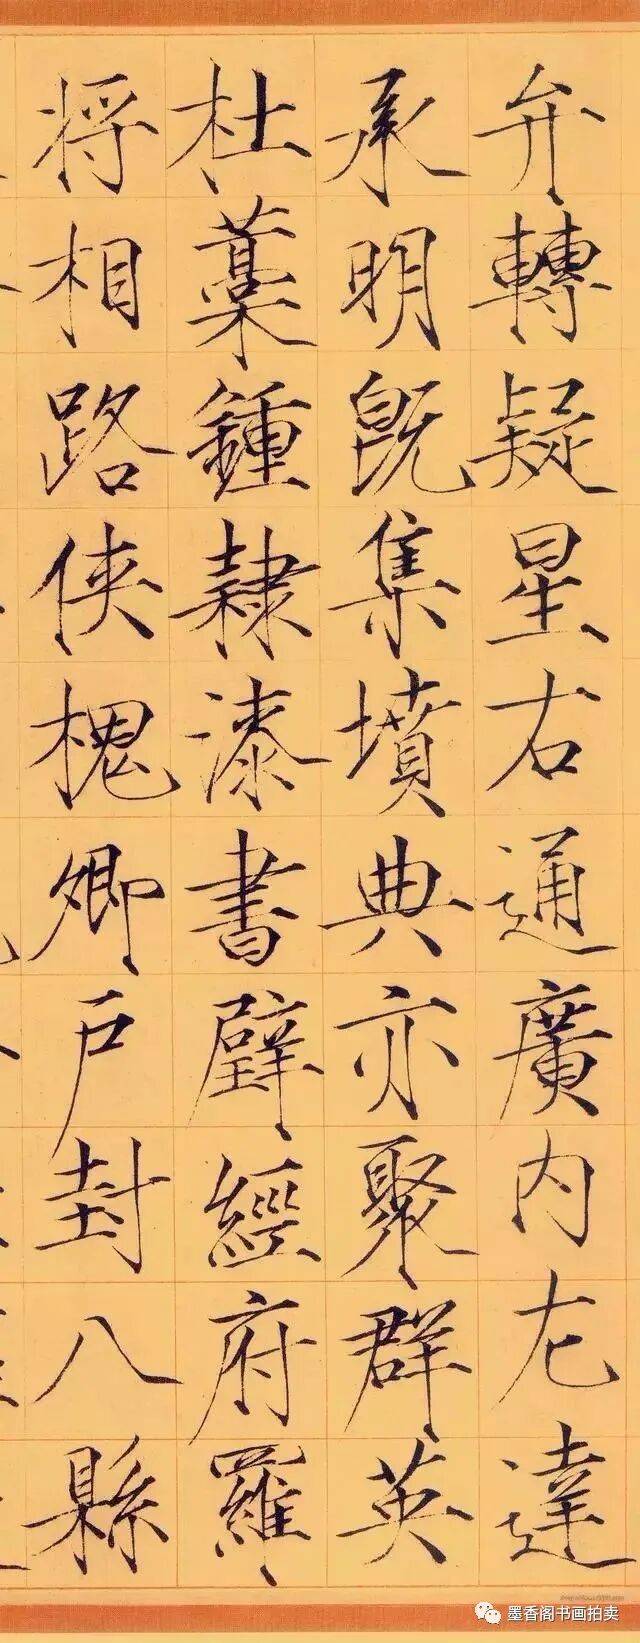 弁轉疑星右通廣內左達
承明既集墳典亦聚群英
杜藁鍾隸漆書壁經府羅
將相路俠槐卿戶封八縣
墨香阁书画拍卖